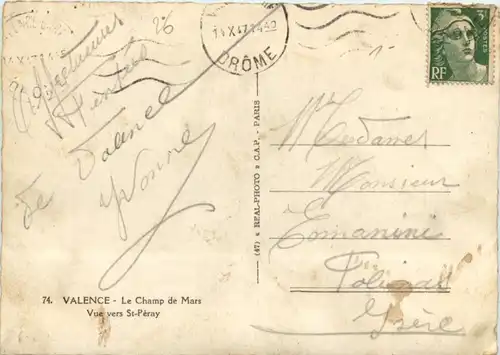 26
14 X 47 14 50
DRÔME
RF
POSTES
Affectueuses
de Valence
Yvonne
(47) « REAL-PHOTO » C.A.P. - PARIS
Monsieur
Ermanini
Polinas
Isère
74. VALENCE - Le Champ de Mars
Vue vers St-Péray